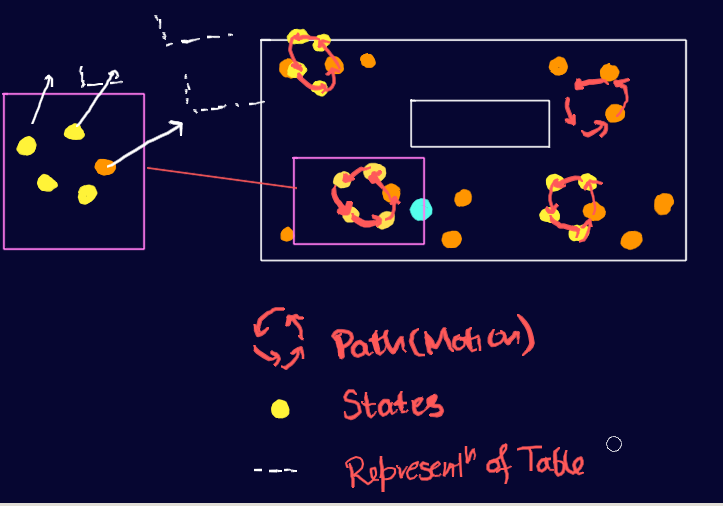 Path(Motion)
States
Representⁿ of Table